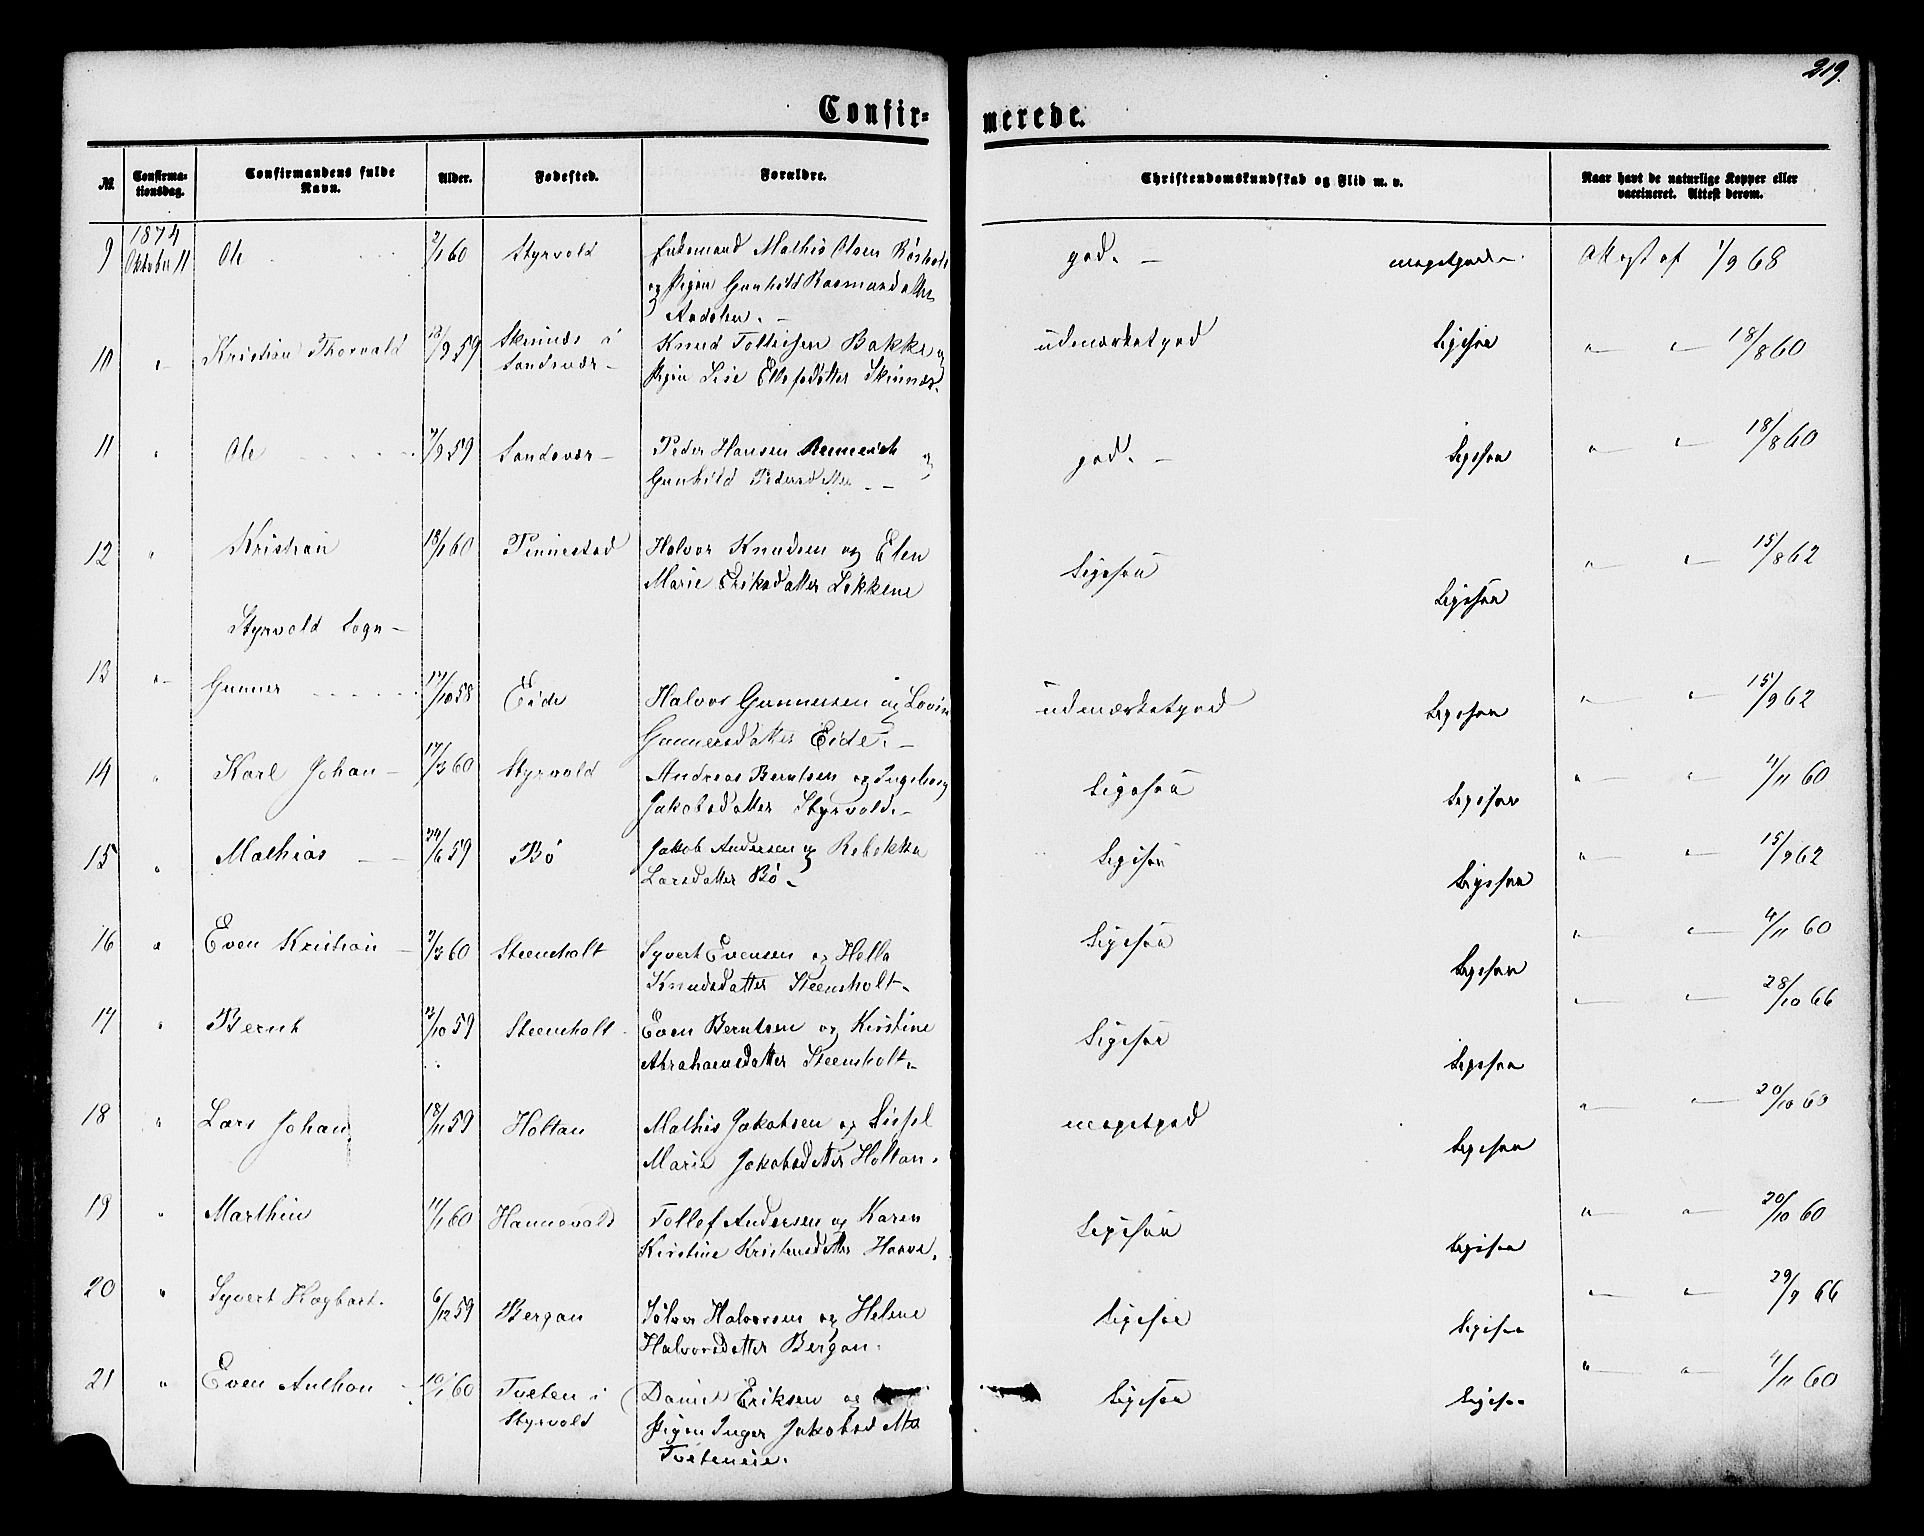 219.
Confir- merede.
№ Confirmationsdag. Confirmandens fulde Navn. Alder. Fødested. Forældre. Christendomskundskab og Flid m. v. Naar havt de naturlige Kopper eller vaccineret. Attest derom.
9 1874 Oktober 11 Ole 2/1 60 Styrvold Mathis Olsen god. - megetgod - Attest af 1/9 68
og Pigen Gunhild Rasmusdatter
10 " Kristian Thorvald 59 Skinnes i Knud Tollefsen Bakke og udmærketgod Ligesaa " " 18/8 60
Sandsvær - Pigen Lise Ellefsdatter Skinnes.
11 " Ole 59 Sandsvær - Peder Hansen og god. - Ligesaa " " 18/8 60
Gunhild Pedersdatter - -
12 " Kristian 18/1 60 Halvor Knudsen og Elen Ligesaa Ligesaa " " 15/8 62
Marie Eriksdatter Løkkene
Styrvold Sogn -
13 " Gunner 17/10 58 Eide Halvor Gunnersen og udmærketgod Ligesaa " " 15/9 62
Gunnersdatter Eide. -
14 " Karl Johan - 17/3 60 Styrvold Andreas Berntsen og Ingeborg Ligesaa Ligesaa " " 4/11 60
Jakobsdatter Styrvold. -
15 " Mathias - - 24/6 59 Bø Jakob Andersen og Rebekka Ligesaa Ligesaa " " 15/9 62
Larsdatter Bø -
16 " Even Kristian - 2/3 60 Steensholt Syvert Evensen og Hella Ligesaa Ligesaa " " 4/11 60
Knudsdatter Steensholt -
17 " Bernt 13/10 59 Steensholt Even Berntsen og Kirstine Ligesaa Ligesaa " " 28/10 66
Abrahamsdatter Steensholt -
18 " Lars Johan 18/11 59 Holtan Mathis Jakobsen og Sissel megetgod Ligesaa " " 20/10 60
Marie Jakobsdatter Holtan.
19 " Marthin 11/1 60 Hannevold Tollef Andersen og Karen Ligesaa Ligesaa " " 20/10 60
Kirstine Kristensdatter
20 " Syvert Hagbart. 6/12 59 Bergan Sølver Halvorsen og Helene Ligesaa Ligesaa " " 29/7 66
Halvorsdatter Bergan.
21 " Even Anthon 10/1 60 Tveten i Daniel Eriksen og Ligesaa Ligesaa " " 4/11 60
Styrvold Pigen Inger Jakobsdatter
Tveteneie.